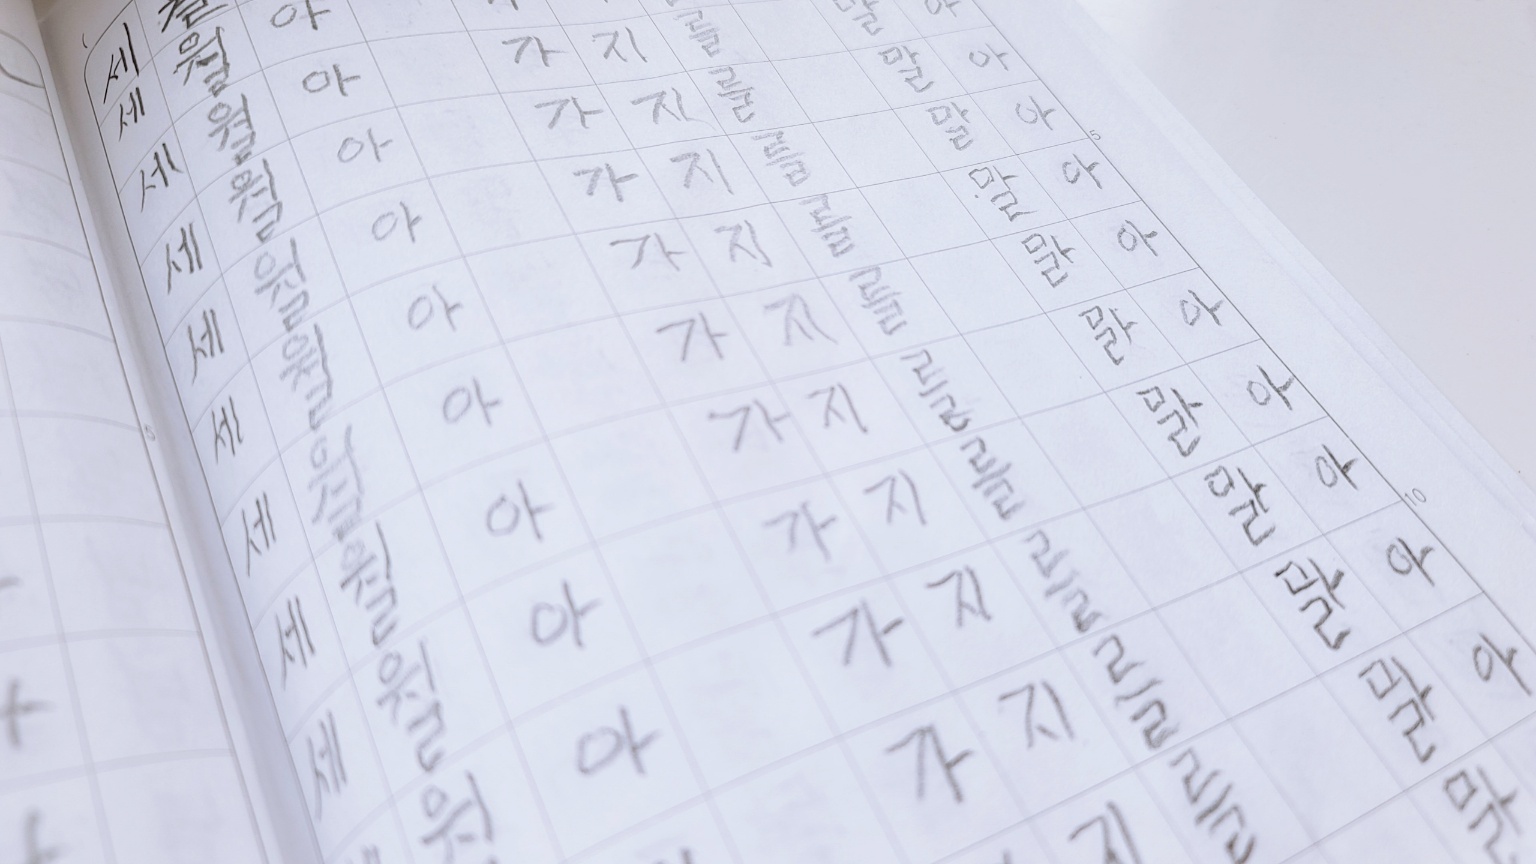 세월아 가지를 말아
세월아 가지를 말아
세월아 가지를 말아
세월아 가지를 말아
세월아 가지를 말아
세월아 가지를 말아
세월아 가지를 말아
세월아 가지를 말아
세월아 가지를 말아
세월아 가지를 말아
5
10